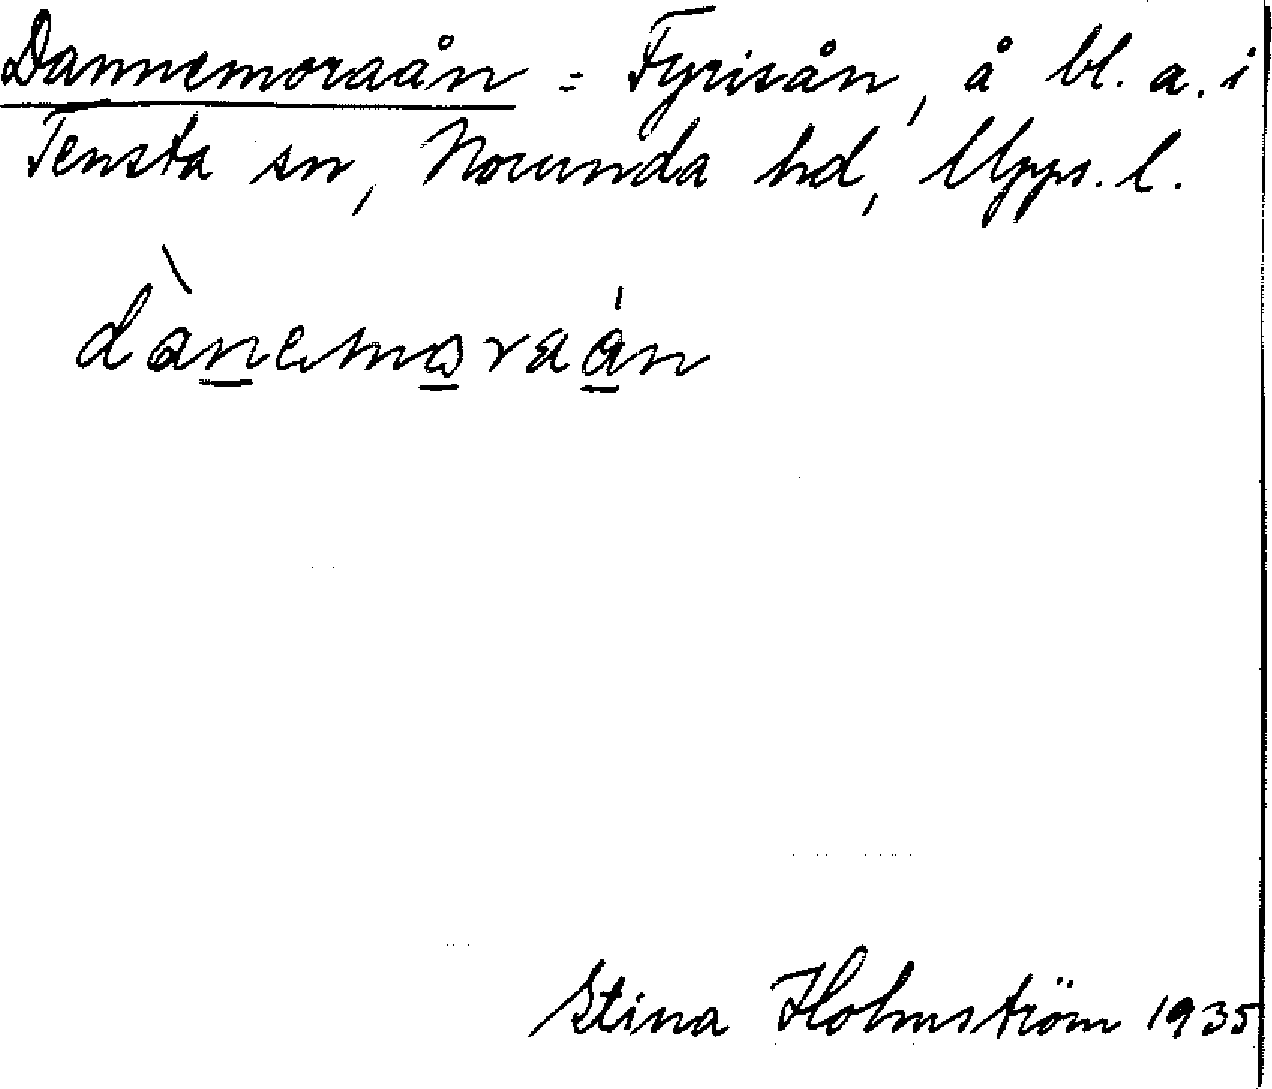 Dannemoraån = Fyrisån, å bl. a. i
Tensta sn, Norunda hd, Upps. l.
dànemoraán
Stina Holmström 1935